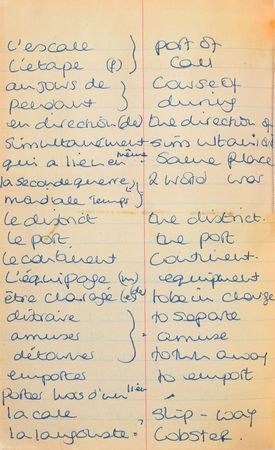 l'escale } port of
L'étape (f) } Call
au jours de } Course of
pendant } during
en direction (de) the direction of
simultanément simultané
qui a lieu en même Same place
la seconde guerre 2 world war
mondiale temps
le district the district.
le port the port
le continent Continent.
L'équipage (m) equipment
être chargé (de) to be in charge
distraire to separate
amuser } = amuse
détourner to turn away
emporter to emport
porter hors d'un lieu
la cale slip-way
la langouste = lobster.